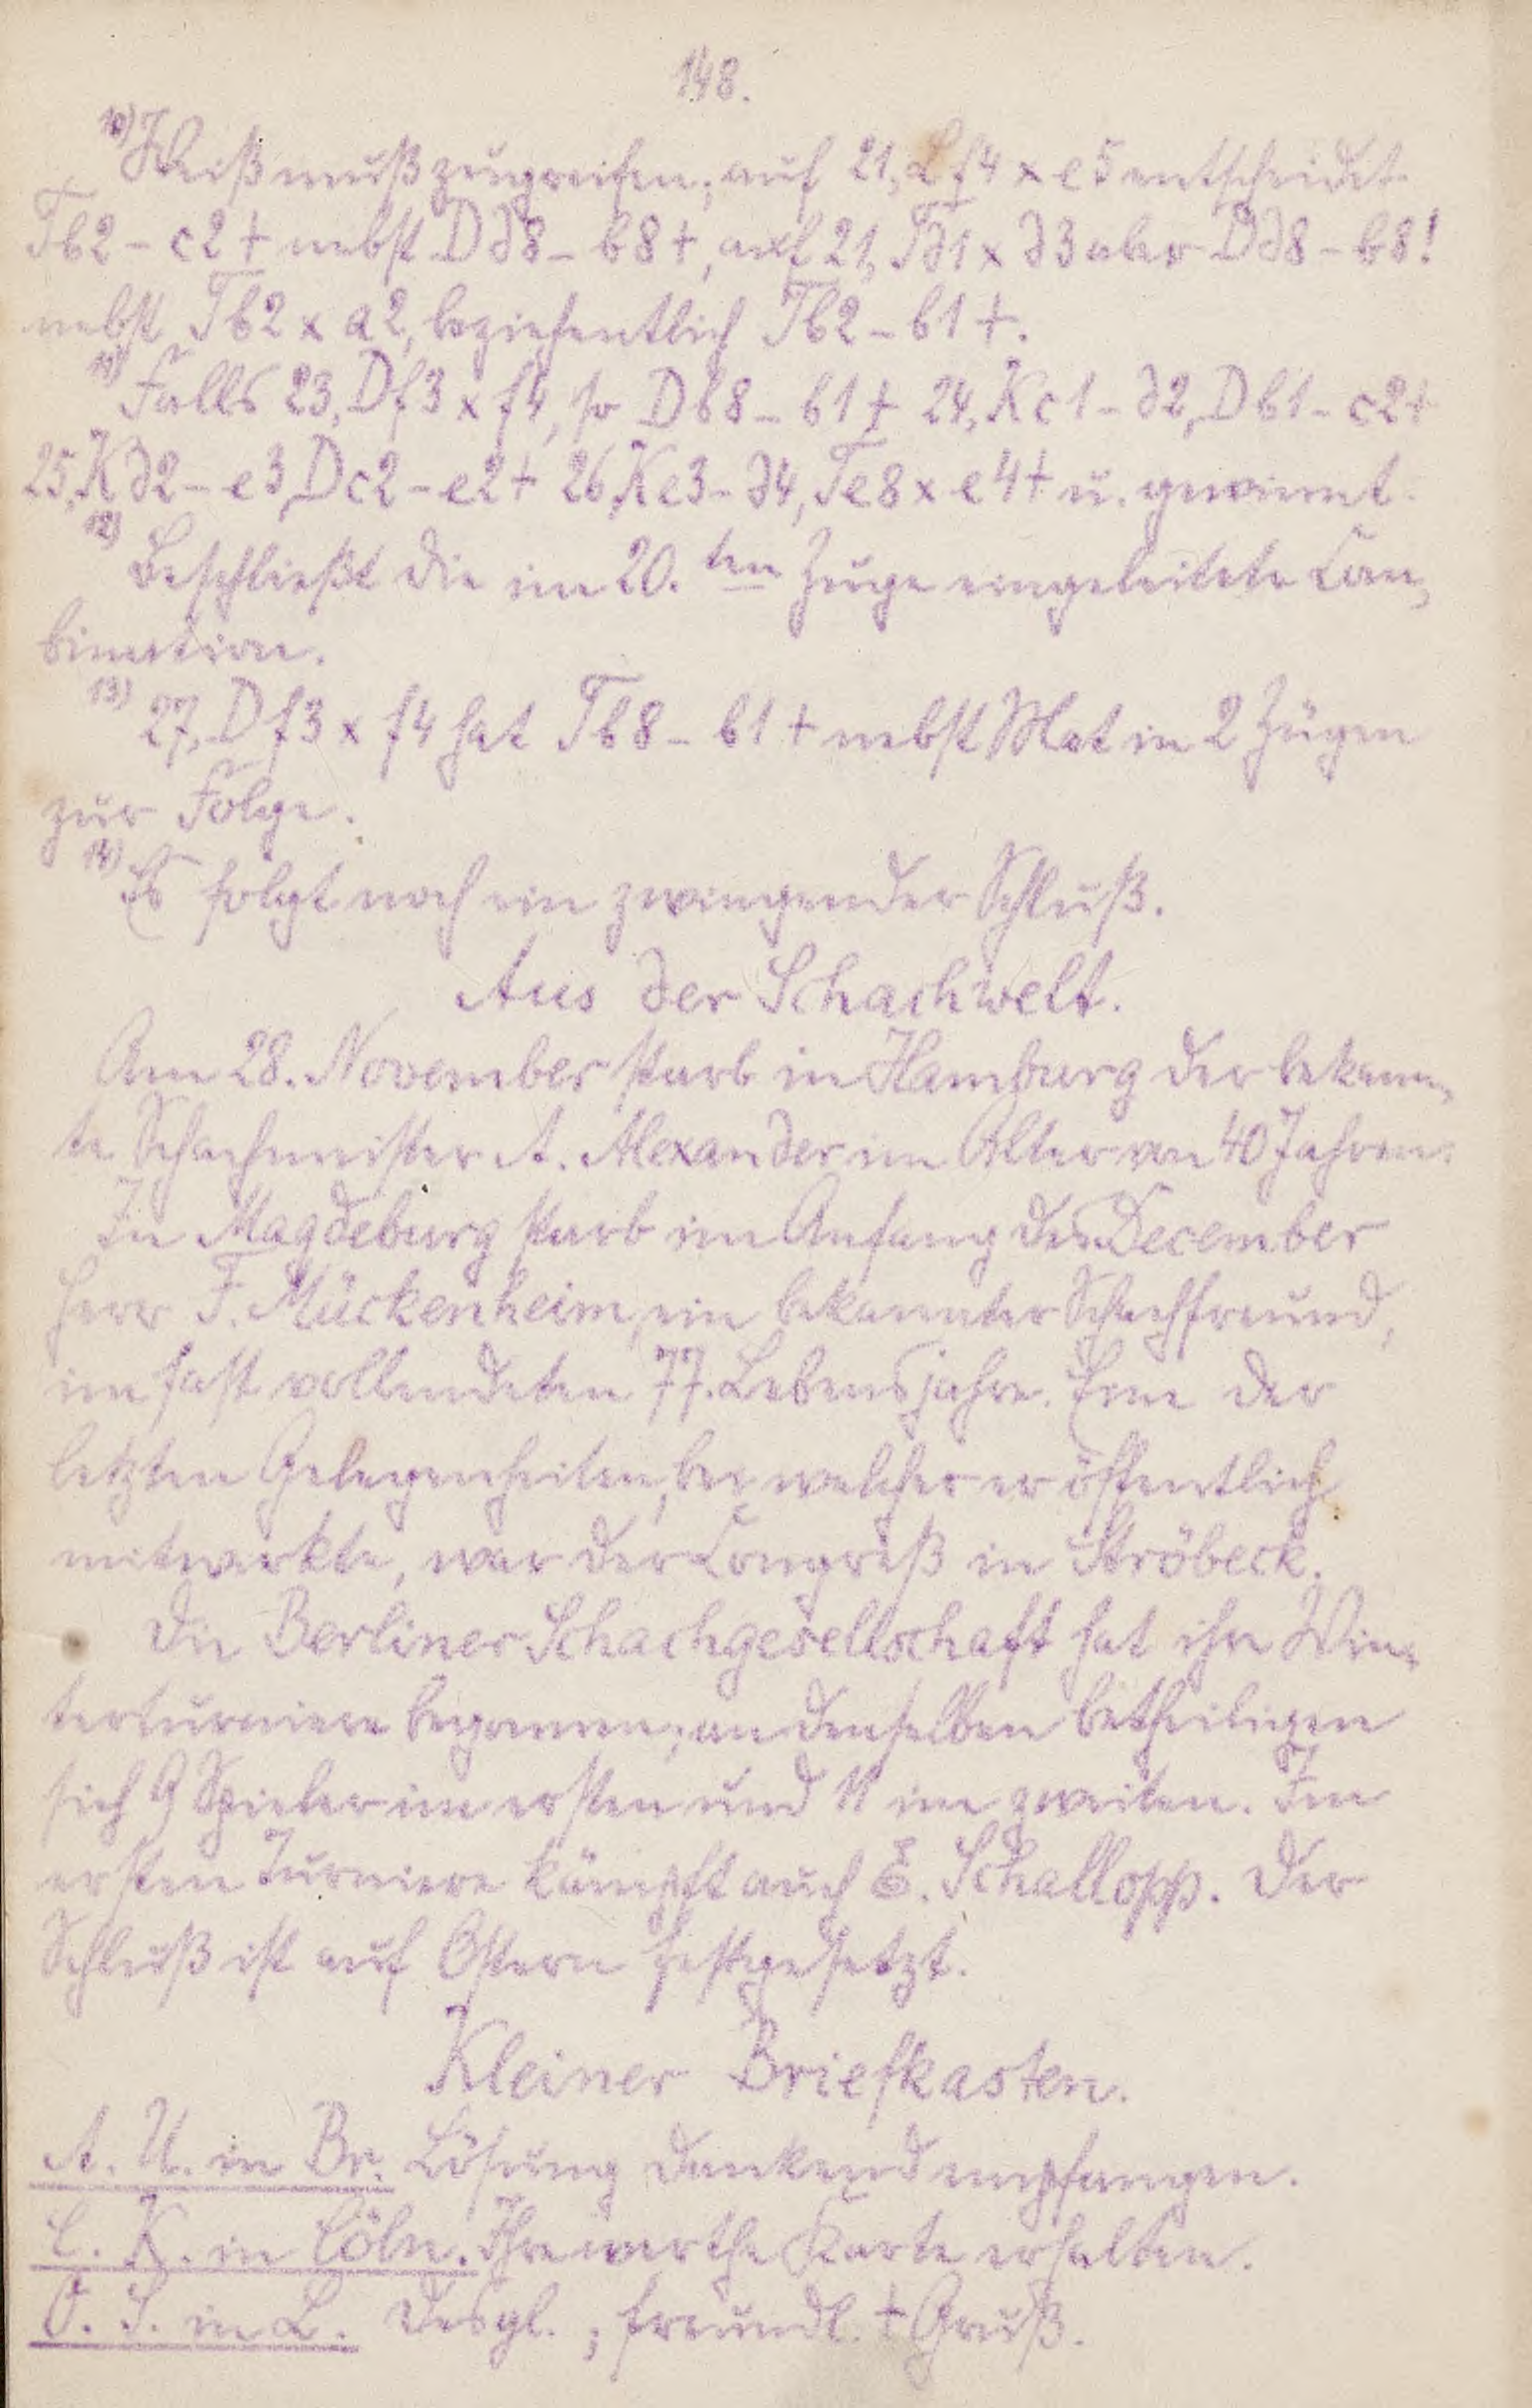 148.
10) Weiß muß zugreifen; auf 21, Lf4 x e5 entscheidet
Tb2 - c2 + nebst Dd8 - b8 +, auf 21, Td1 x d3 aber Dd8 - b8!
nebst Tb2 x a2, beziehentlich Tb2 - b1 +.
11) Falls 23, Df3 x f4, so Db8 - b1 + 24, Kc1 - d2, Db1 - c2 +
25, Kd2 - e3, Dc2 - e2 + 26, Ke3 - d4, Te8 x e4 + u. gewinnt.
12) Beschließt die im 20. ten Zuge eingeleitete Com-
bination.
13) 27, Df3 x f4 hat Tb8 - b1 + nebst Mat in 2 Zügen
zur Folge.
14) Es folgt noch ein zwingender Schluß.
Aus der Schachwelt.
Am 28. November starb in Hamburg der bekann-
te Schachmeister A. Alexander im Alter von 40 Jahren.
In Magdeburg starb im Anfang des December
Herr F. Mückenheim, ein bekannter Schachfreund,
im fast vollendeten 77. Lebensjahre. Eine der
letzten Gelegenheiten, bei welcher er öffentlich
mitwirkte, war der Congreß in Ströbeck.
Die Berliner Schachgesellschaft hat ihr Win-
terturniere begonnen; an denselben betheiligen
sich 9 Spieler im ersten und 11 im zweiten. Im
ersten Turniere kämpft auch E. Schallopp. Der
Schluß ist auf Ostern festgesetzt.
Kleiner Briefkasten.
A. U. in Br. Lösung dankend empfangen.
C. K. in Cöln. Ihre werthe Karte erhalten.
O. S. in L. Desgl.; freundl. + Gruß.